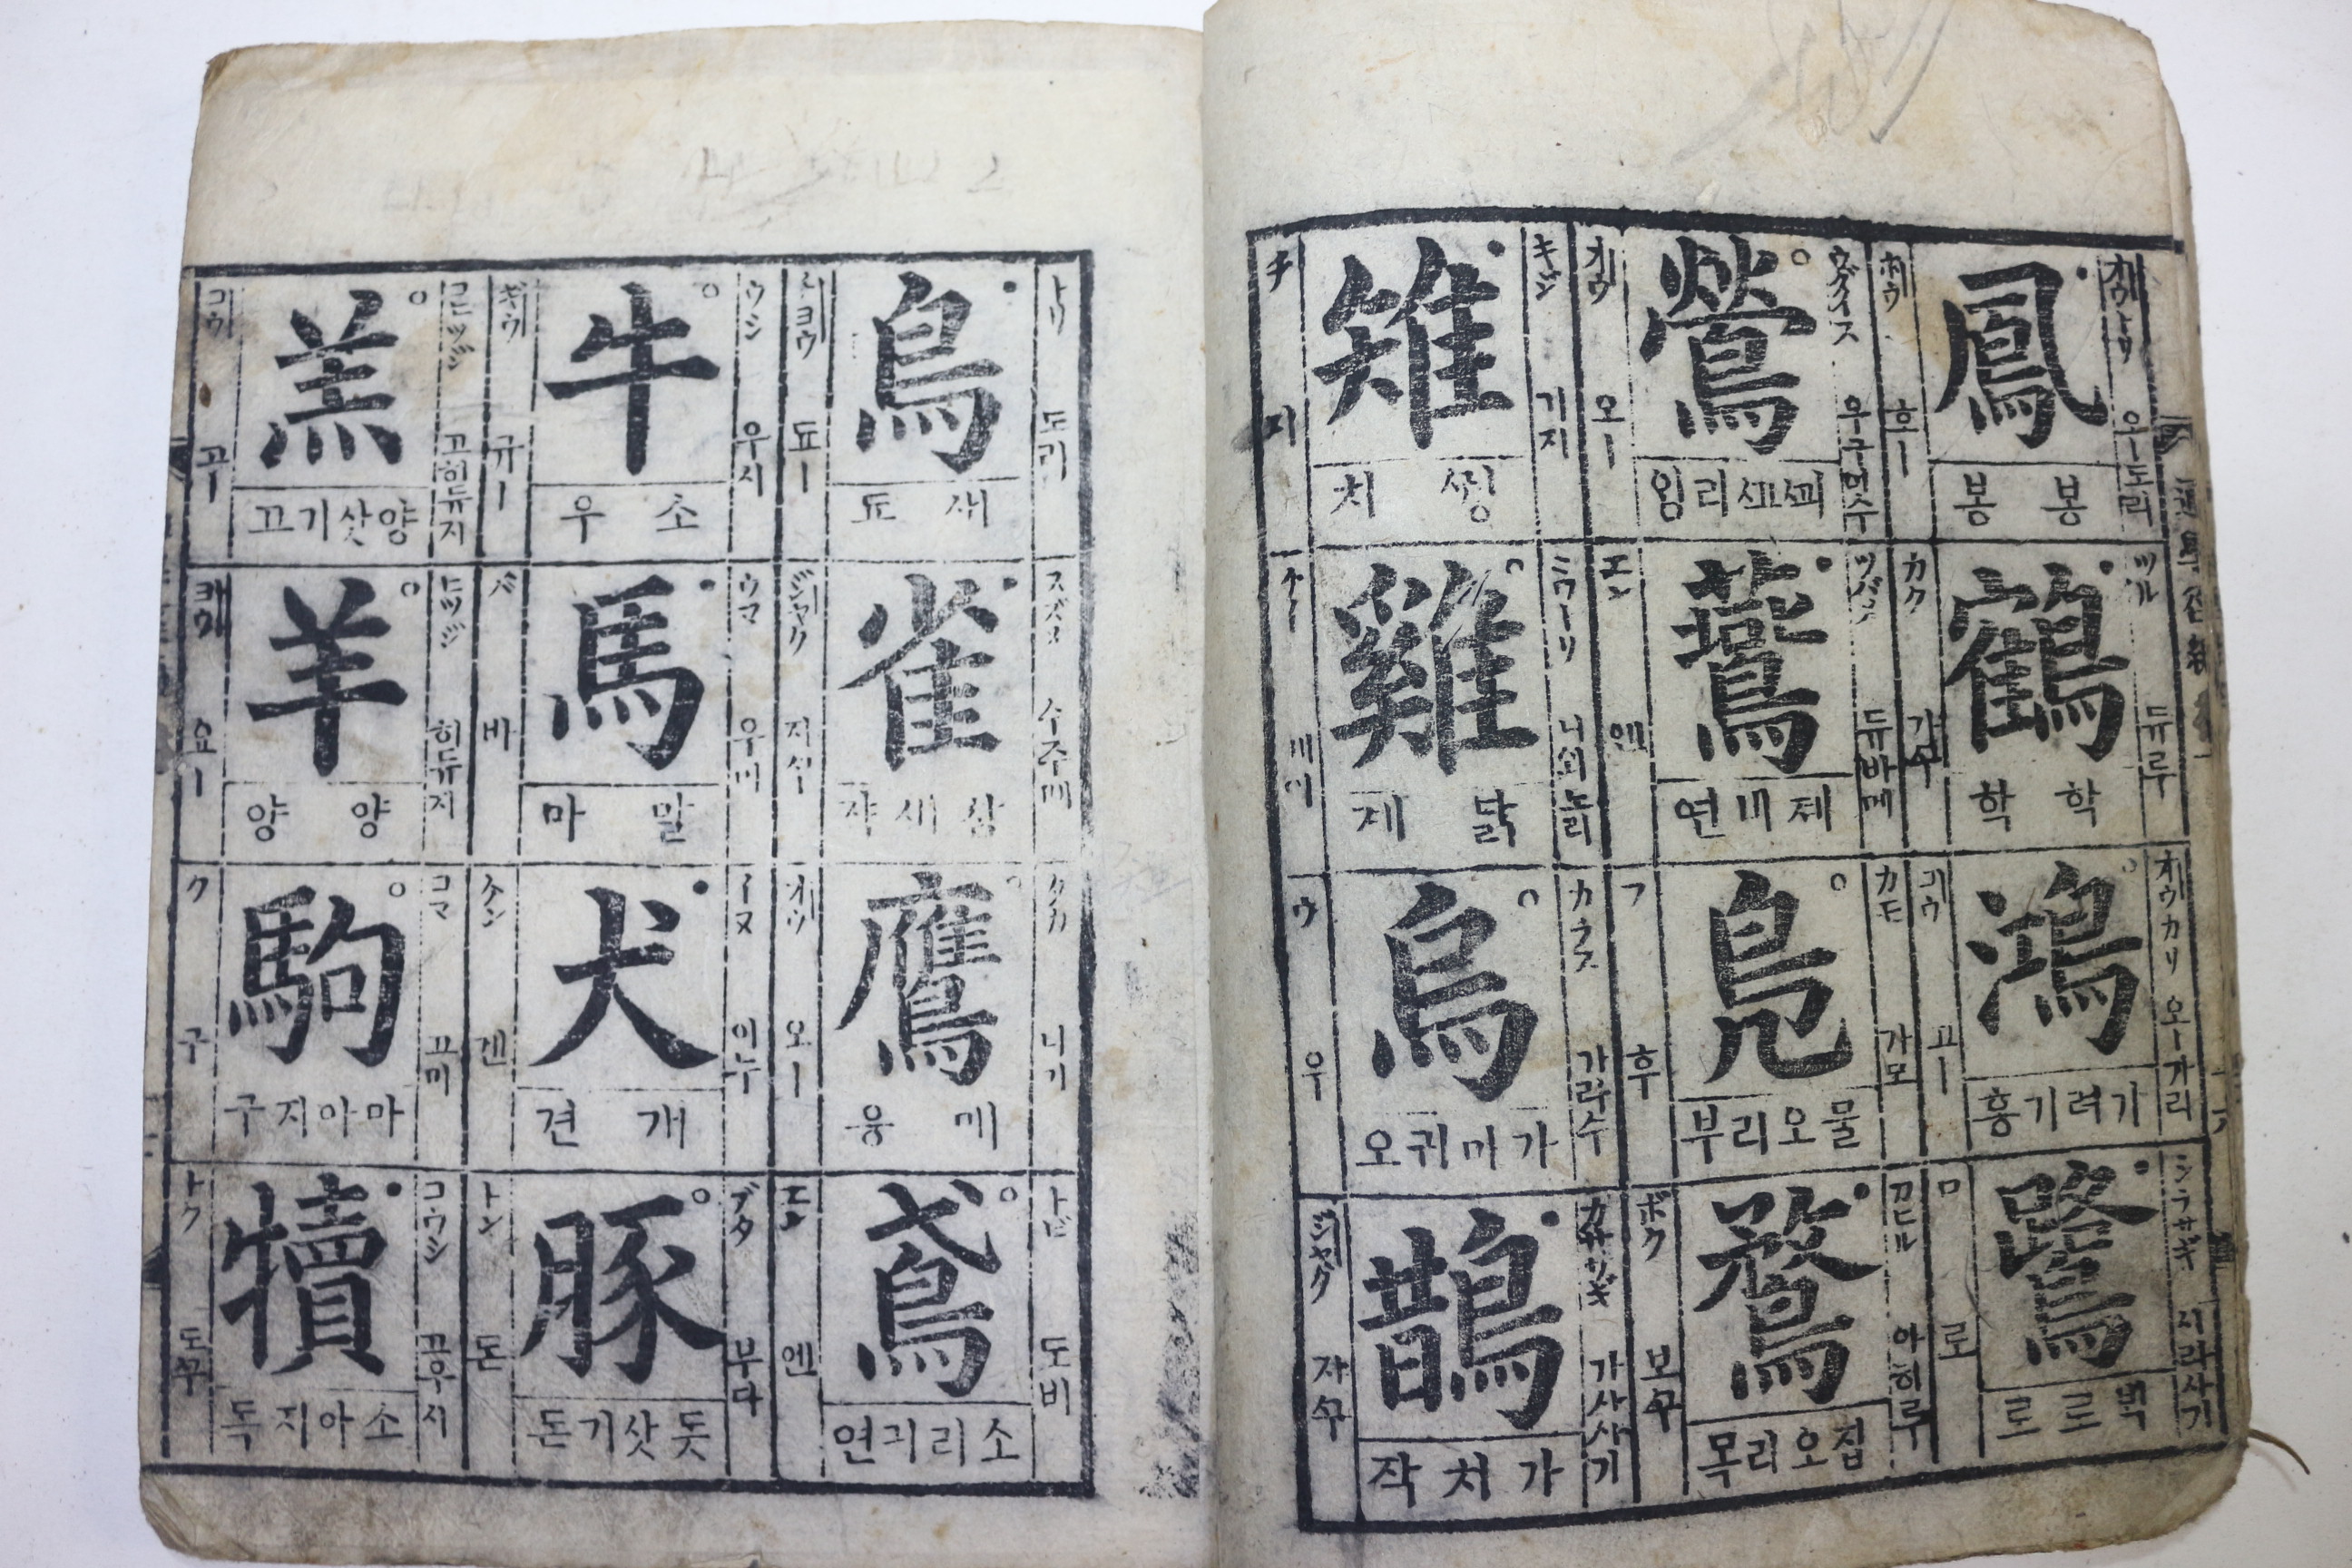 オウトリ 오ー도리
鳳
봉 봉
ホウ 흐ー
ツル 듀루
鶴
학 학
カク 가구
オウカリ 오ー가리
鴻
가려기홍
コウ 고ー
シラサギ 시라사기
鷺
로
ロ 로
ウグイス 우구이수
鶯
리잉
オウ 오ー
ツバメ 듀바메
燕鳥
제비연
エン 엔
カモ 가모
鳧
물오리부
フ 후
アヒル 아히루
鶩
집오리목
ボク 보구
キジ 기지
雉
치
チ 지
ニワトリ
雞
닭 계
カラス 가라수
烏
가마귀오
ウ 우
カササギ 가사사기
鵲
가치작
ジャク 자구
トリ 도리
鳥
새 됴
チョウ 됴ー
スズメ 수주메
雀
참새쟉
ジャク 지샤구
タカ
鷹
매 응
オウ 오ー
トビ 도비
鳶
소리긔연
エン 엔
ウシ 우시
牛
소 우
ギウ 규ー
ウマ 우마
馬
말 마
バ 바
イヌ 이누
犬
개 견
ケン 겐
ブタ 부다
豚
돗삿기돈
トン 돈
コヒツジ 고히듀지
羔
양삿기고
コウ 고ー
ヒツジ 히듀지
羊
양 양
ヨウ 요ー
コマ 고마
駒
마아지구
ク 구
コウシ 고우시
犢
소아지독
トク 도구